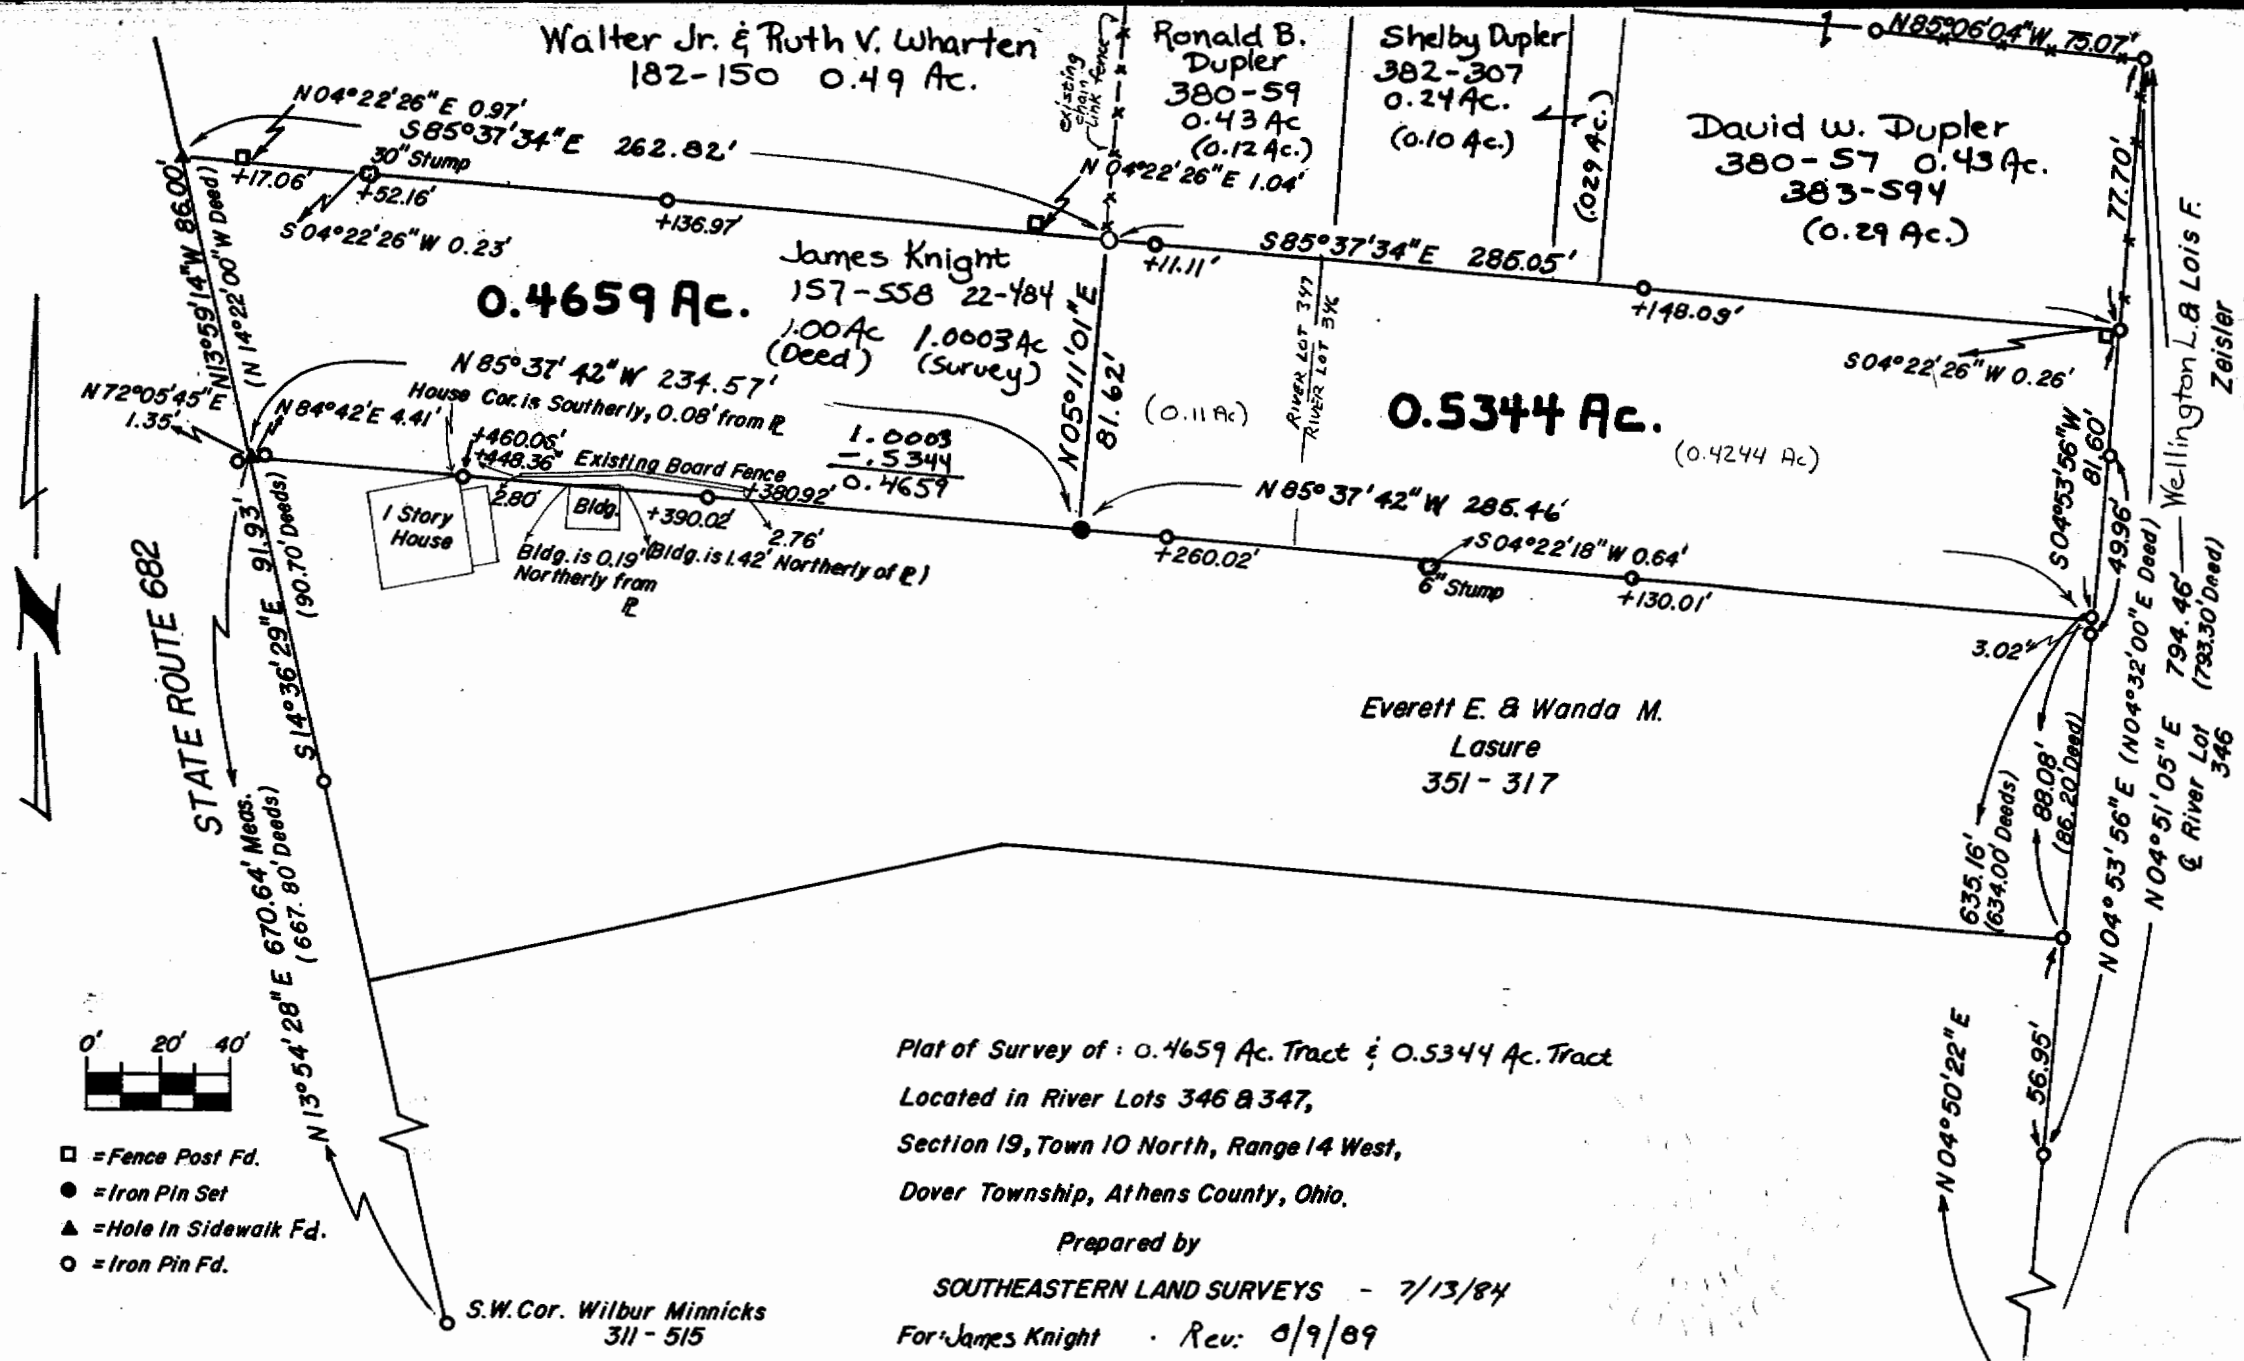 Walter Jr. & Ruth V. Wharten
182-150 0.49 Ac.
existing
chain
link fence
Ronald B.
Dupler
380-59
0.43 Ac
(0.12 Ac.)
Shelby Dupler
382-307
0.24 Ac.
(0.10 Ac.)
(.029 Ac.)
N85°06'04"W 75.07'
David W. Dupler
380-57 0.43 Ac.
383-594
(0.29 Ac.)
77.70'
Wellington L. & Lois F.
Zeisler
N04°22'26"E 0.97'
S85°37'34"E 262.82'
30" Stump
+17.06'
+52.16'
S04°22'26"W 0.23'
+136.97'
N 04°22'26"E 1.04'
+11.11'
S85°37'34"E 285.05'
+148.09'
S04°22'26"W 0.26'
N13°59'14"W 86.00'
(N 14°22'00"W Deed)
0.4659 Ac.
James Knight
157-558 22-484
1.00 Ac 1.0003 Ac
(Deed) (Survey)
N05°11'01"E
81.62'
(0.11 Ac)
RIVER LOT 347
RIVER LOT 346
0.5344 Ac.
(0.4244 Ac)
S04°53'56"W
81.60'
49.96'
N 85°37'42"W 234.57'
House Cor. is Southerly, 0.08' from PL
N72°05'45"E
1.35'
N84°42'E 4.41'
+460.06'
+448.36'
Existing Board Fence
1.0003
-.5344
0.4659
+380.92'
2.80'
Bldg.
+390.02'
2.76'
1 Story
House
Bldg. is 0.19'
Northerly from
PL
(Bldg. is 1.42' Northerly of PL)
N 85°37'42"W 285.46'
+260.02'
S04°22'18"W 0.64'
6" Stump
+130.01'
3.02'
STATE ROUTE 682
S14°36'29"E 91.93'
(90.70' Deeds)
N13°54'28"E 670.64' Meas.
(667.80' Deeds)
Everett E. & Wanda M.
Lasure
351-317
635.16'
(634.00' Deeds)
88.08'
(86.20' Deed)
N04°53'56"E (N04°32'00"E Deed)
N04°51'05"E 794.46'
(793.30' Deed)
CL River Lot
346
N04°50'22"E
56.95'
0' 20' 40'
=Fence Post Fd.
=Iron Pin Set
=Hole In Sidewalk Fd.
=Iron Pin Fd.
S.W. Cor. Wilbur Minnicks
311-515
Plat of Survey of: 0.4659 Ac. Tract & 0.5344 Ac. Tract
Located in River Lots 346 & 347,
Section 19, Town 10 North, Range 14 West,
Dover Township, Athens County, Ohio.
Prepared by
SOUTHEASTERN LAND SURVEYS - 7/13/84
For: James Knight . Rev: 8/9/89
N